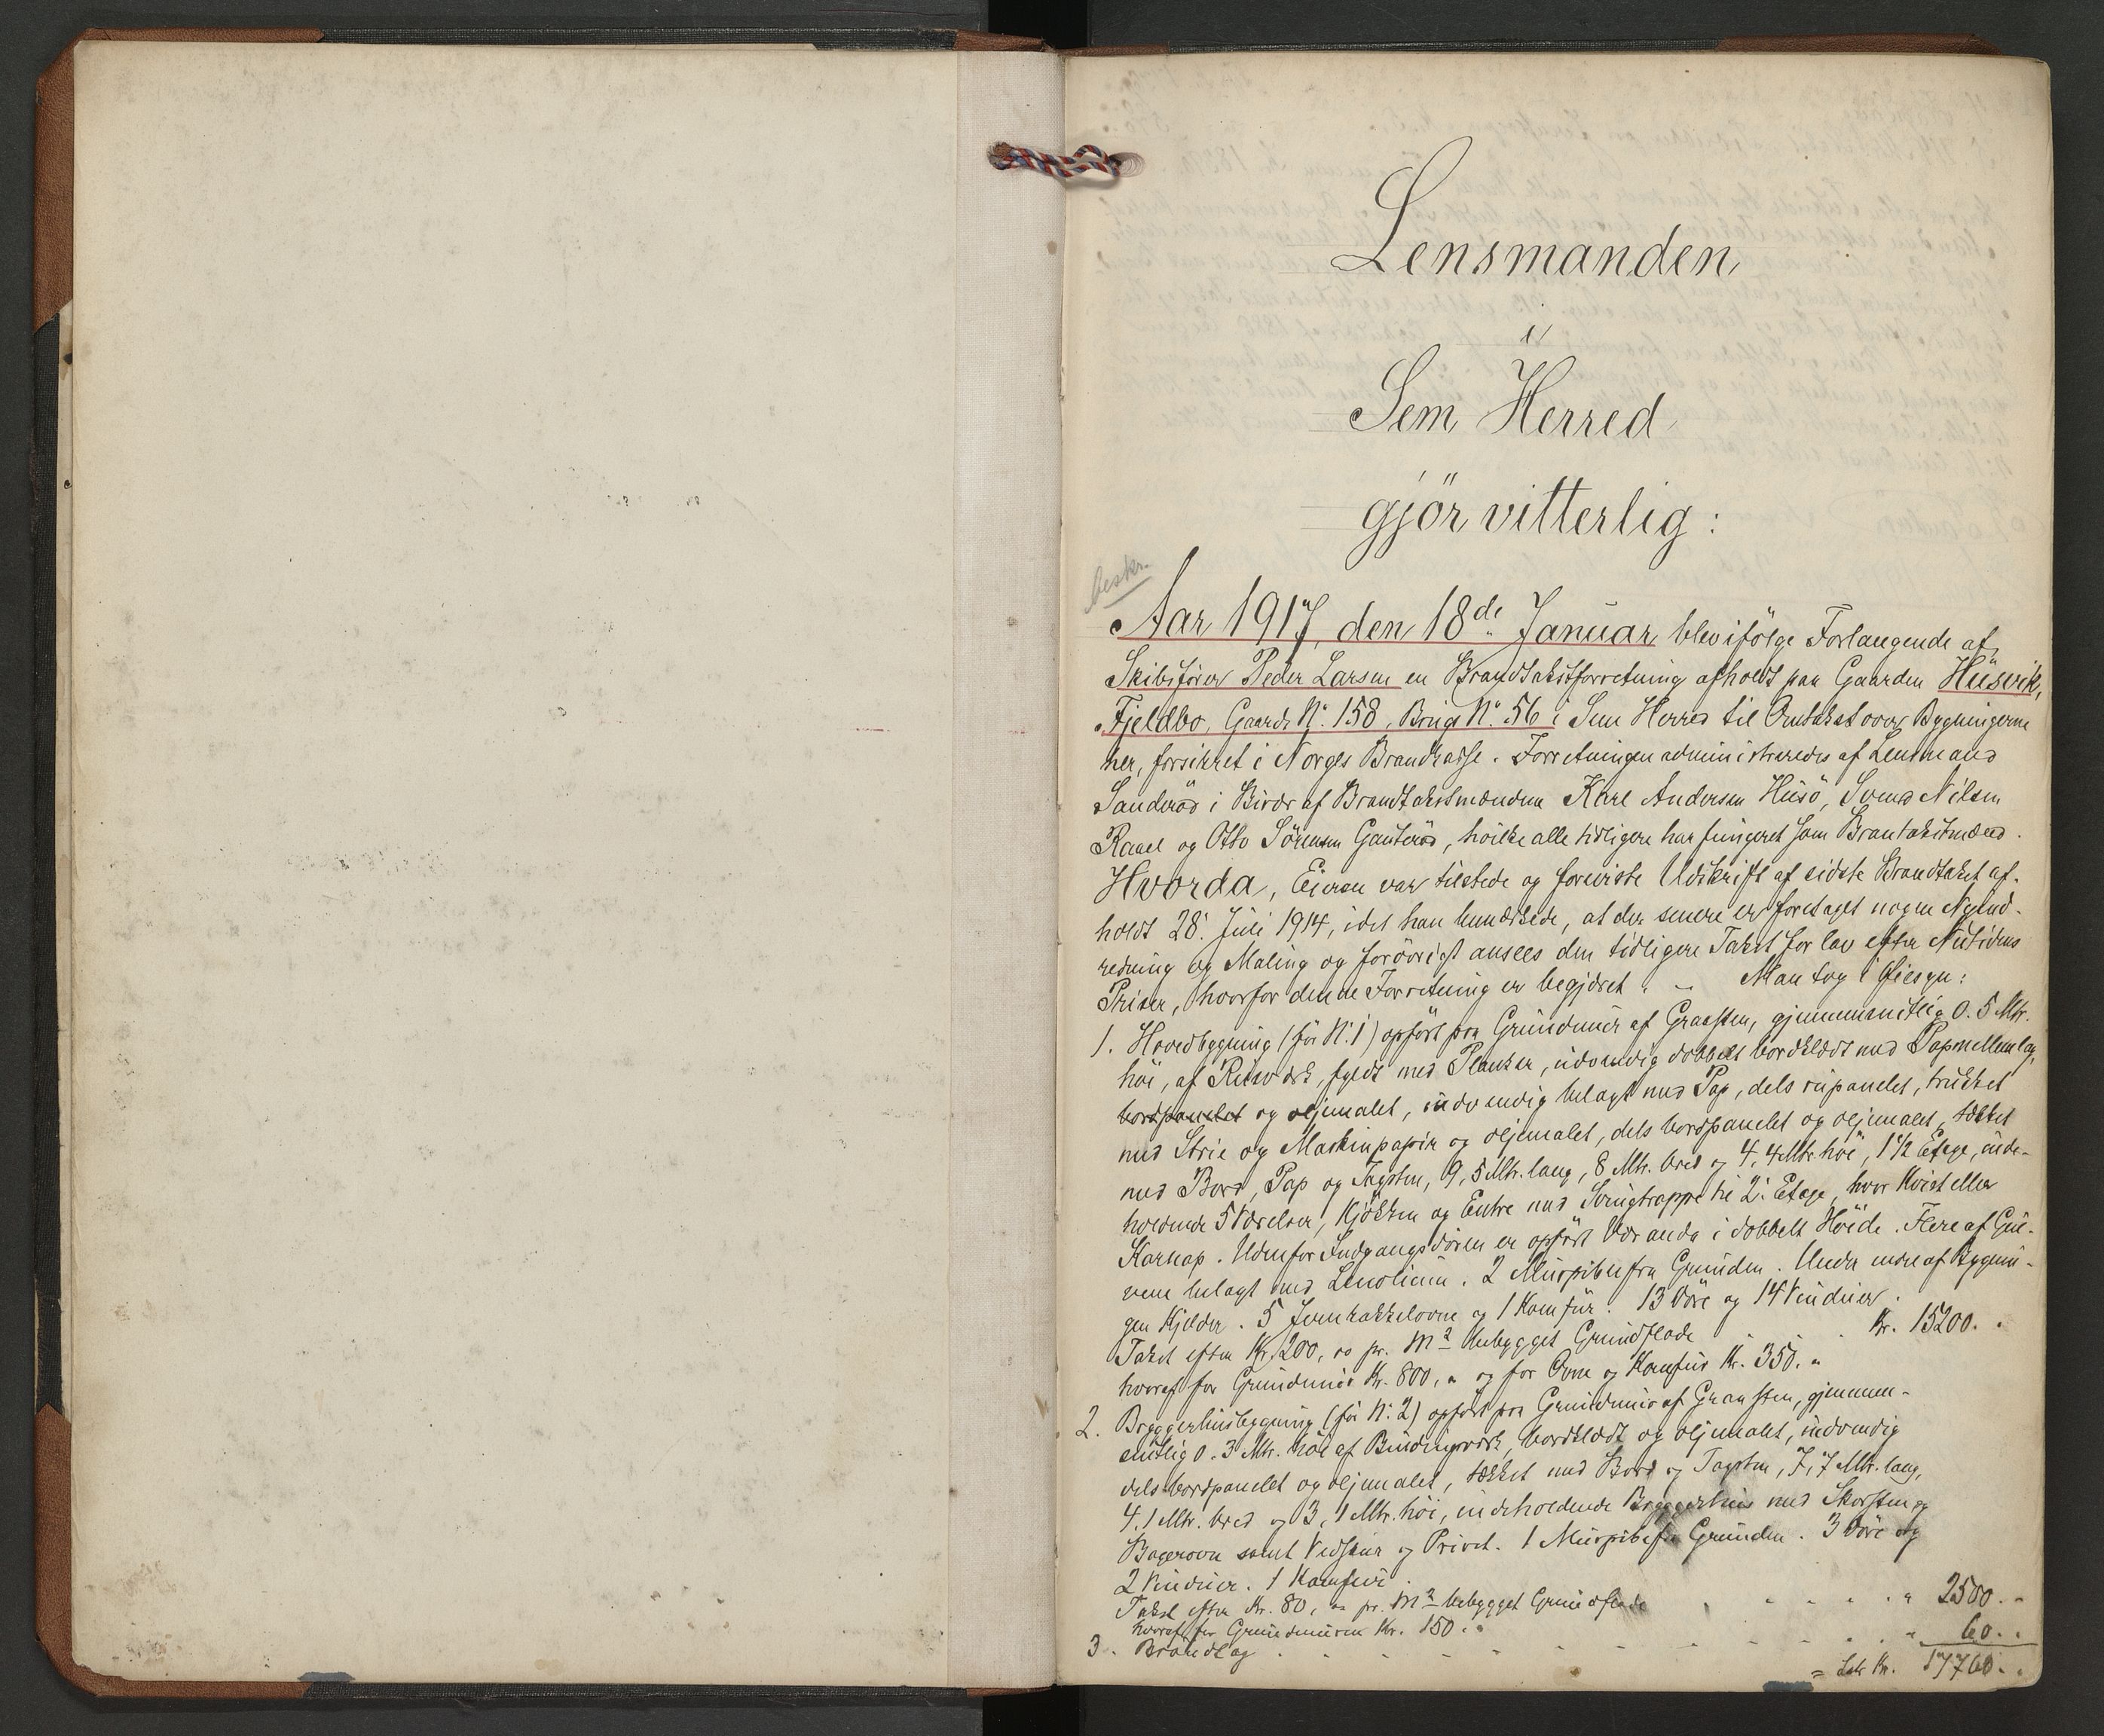 Lensmanden
i
Sem Herred
gjör vitterlig:
beskr.
Aar 1917, den 18de Januar blev ifölge Forlangende af
Skibsförer Peder Larsen en Brandtakstforretning afholdt paa Gaarden Husvik,
Fjeldbo, Gaards No. 158, Brugs No. 56 i Sem Herred til Omtakst over Bygningerne
her, forsikret i Norges Brandkasse. Forretningen administreredes af Lensmand
Sanderöd i Bivær af Brandtakstmændene Karl Andersen Husö, Svend Nilsen
Raael og Otto Sörensen Gauteröd, hvilke alle tidligere har fungeret som Brantakstmænd.
Hvorda, Eieren var tilstede og foreviste Udskrift af sidste Brandtakst af-
holdt 28. Juli 1914, idet han bemærkede, at der senere er foretaget nogen Nyind-
redning og Maling og forövrigt ansees den tidligere Takst for lav efter Nutidens
Priser, hvorfor denne Forretning er begjæret. - Man tog i Öiesyn:
1. Hovedbygning (för N. 1) opfört paa Grundmur af Graasten, gjennemsnitlig 0.5 Mtr.
höi, af Reisværk, fyldt med Planker, udvendig dobbelt bordklædt med Papmellemlag,
bordpanelet og oljemalet, indvendig belagt med Pap, dels rupanelet, trukket
med Strie og Maskinpapir og oljemalet, dels bordpanelet og oljemalet, tækket
med Bord, Pap og Tagsten, 9,5 Mtr. lang, 8 Mtr. bred og 4,4 Mtr. höi, 1 1/2 Etage, inde-
holdende 5 Værelser, Kjökken og Entre med Svingtrappe til 2. Etage, hvor Kvist eller
Karnap. Udenfor Indgangsdören er opfört Veranda i dobbelt Höide. Flere af Gul-
vene belagt med Linolium. 2 Murpiber fra Grunden. Under endel af Bygnin-
gen Kjelder. 5 Jernkakkelovne og 1 Komfür. 13 Döre og 14 Vinduer.
Takst efter Kr. 200, oo pr. M2 bebygget Grundflade . . . Kr. 15200. "
hvoraf for Grundmur Kr. 800, " og for Ovne og Komfür Kr. 350. "
2. Bryggerhusbygning (för N. 2) opfört paa Grundmur af Graasten, gjennem-
snitlig 0.3 Mtr. höi af Bindingsværk, bordklædt og oljemalet, indvendig
dels bordpanelet og oljemalet, tækket med Bord og Tagsten, 7,7 Mtr. lang,
4.1 Mtr. bred og 3,1 Mtr. höi, indeholdende Bryggerhus med Skorsten og
Bagerovn samt Vedskur og Privet. 1 Murpibe fra Grunden. 3 Döre og
2 Vinduer. 1 Komfur.
Takst efter Kr. 80, oo pr. M2 bebygget Grundflade . . . . " 2500. "
hvoraf for Grundmuren Kr. 150. "
3. Brandtag . . . . " 60. "
= Kr. 17760. "